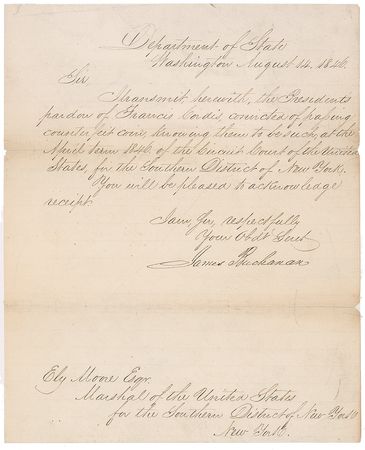 Department of State
Washington August 14. 1846.
Sir.
I transmit herewith, the President's
pardon of Francis Cordis, convicted of passing
counterfeit coin, knowing them to be such, at the
April term 1846, of the Circuit Court of the United
States, for the Southern District of New York.
You will be pleased to acknowledge
receipt
I am, Sir, respectfully
Your Obdt Servt
James Buchanan
Ely Moore Esqr.
Marshal of the United States
for the Southern District of New York
New York.